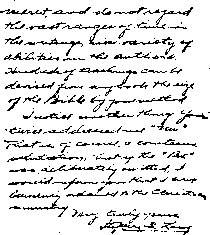 merit and do not regard
the vast ranges of time in
the writings, nor variety of
abilities in the authors.
Hundreds of teachings can be
derived from any book the size
of the Bible by your method.
I notice another thing. You
addressed me "
That is of course, a courteous
salutation, but if the "
was deliberately omitted, I
would inform you that I am
to the Christian
ministry.
Very truly yours